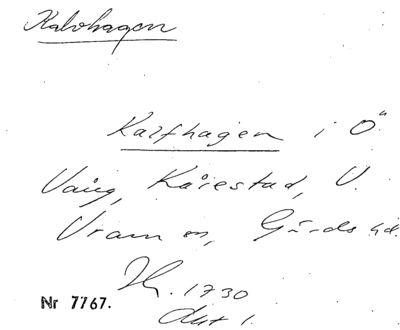 Kalvhagen
Kalfhagen i Ö
Vång, Kårestad, V.
Vram sn, Gärds hd.
Nr 7767.
1730
Akt 1.